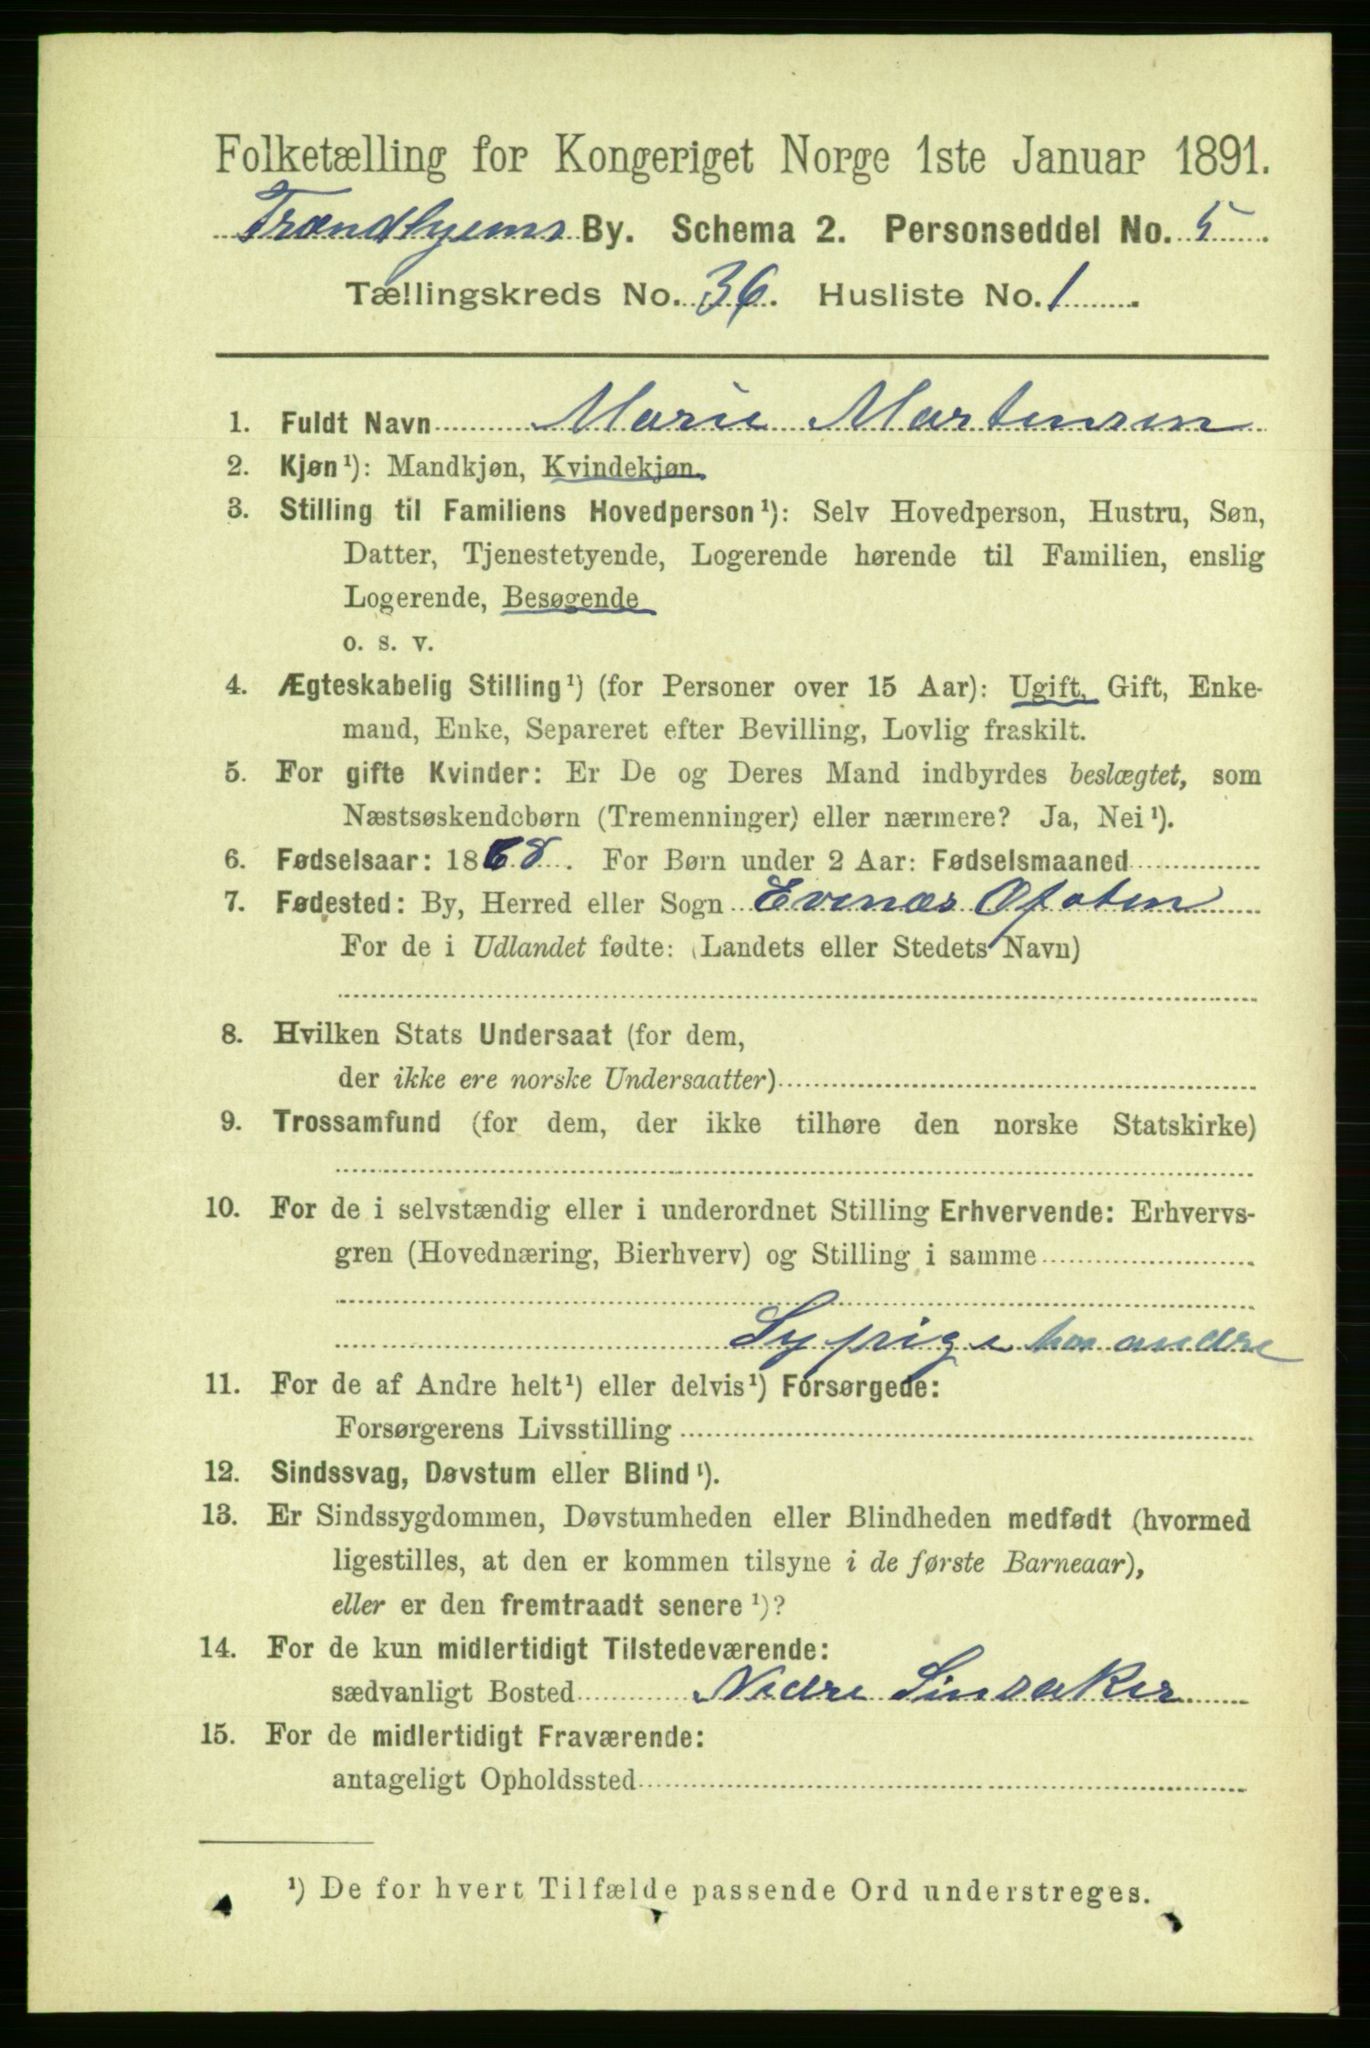 Folketælling for Kongeriget Norge 1ste Januar 1891.
Trondhjems By. Schema 2. Personseddel No. 5.
Tællingskreds No. 36. Husliste No. 1.
1. Fuldt Navn Marie Martensen
2. Kjøn¹): Mandkjøn, Kvindekjøn.
3. Stilling til Familiens Hovedperson¹): Selv Hovedperson, Hustru, Søn,
Datter, Tjenestetyende, Logerende hørende til Familien, enslig
Logerende, Besøgende
o. s. v.
4. Ægteskabelig Stilling¹) (for Personer over 15 Aar): Ugift, Gift, Enke-
mand, Enke, Separeret efter Bevilling, Lovlig fraskilt.
5. For gifte Kvinder: Er De og Deres Mand indbyrdes beslægtet, som
Næstsøskendebørn (Tremenninger) eller nærmere? Ja, Nei¹).
6. Fødselsaar: 1868. For Børn under 2 Aar: Fødselsmaaned
7. Fødested: By, Herred eller Sogn Evenæs Ofoten
For de i Udlandet fødte: (Landets eller Stedets Navn)
8. Hvilken Stats Undersaat (for dem,
der ikke ere norske Undersaatter)
9. Trossamfund (for dem, der ikke tilhøre den norske Statskirke)
10. For de i selvstændig eller i underordnet Stilling Erhvervende: Erhvervs-
gren (Hovednæring, Bierhverv) og Stilling i samme
Sypige hos andre
11. For de af Andre helt¹) eller delvis¹) Forsørgede:
Forsørgerens Livsstilling
12. Sindssvag, Døvstum eller Blind¹).
13. Er Sindssygdommen, Døvstumheden eller Blindheden medfødt (hvormed
ligestilles, at den er kommen tilsyne i de første Barneaar),
eller er den fremtraadt senere¹)?
14. For de kun midlertidigt Tilstedeværende:
sædvanligt Bosted Nedre Sinsaker
15. For de midlertidigt Fraværende:
antageligt Opholdssted
¹) De for hvert Tilfælde passende Ord understreges.